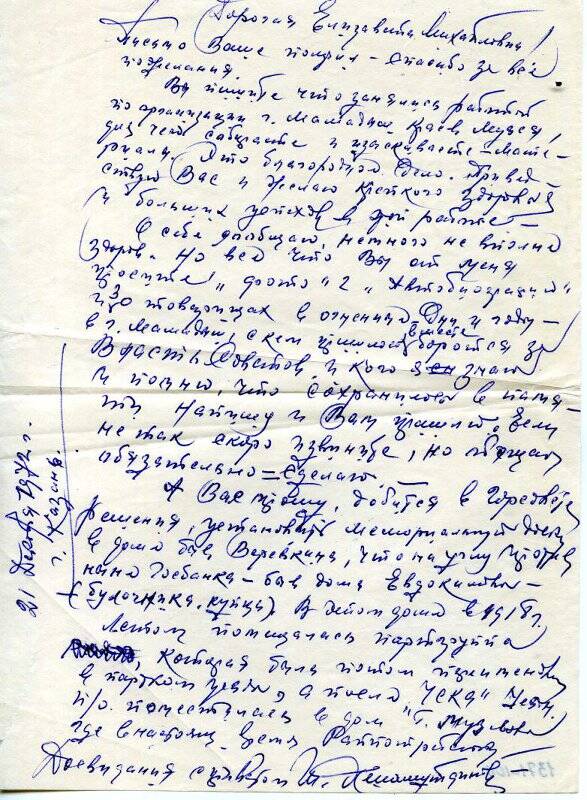 Дорогая Елизавета Михайловна!
Письмо Ваше получил – спасибо за все
пожелания.
Вы пишите что занялись работой
по организации г. Мамадыш Краев. Музея,
для чего собираете и изыскиваете – мате-
риалы. Это благородное дело. Привет-
ствую Вас и желаю крепкого здоровья
и больших успехов в этой работе –
О себе сообщаю, немного не вполне
здоров. Но всё что Вы от меня
просите 1 „фото“ 2 „Автобиография“
и 3 о товарищах в огненные Дни и годы –
в г. Мамадыш, с кем пришлось вместе бороться за
Власть Советов, и кого я знаю
и помню, что сохранилось в памя-
ти Напишу и Вам пришлю. Если
не так скоро извините, но обещаю
обязательно = сделаю. –
А Вас прошу, добится в Горсовете
решения, установить мемориальную доску
в доме быв Веревкина, что на углу против
Госбанка – быв дома Евдокимова –
(булочника, купца). В этом доме в 1918 г.
Летом помещалась партгруппа
которая была потом
в партком уезда, а после „ЧЕКА“
в дом
где в настоящ время
Досвидания с приветом
21 Декабря 1972 г.
г. Казань.